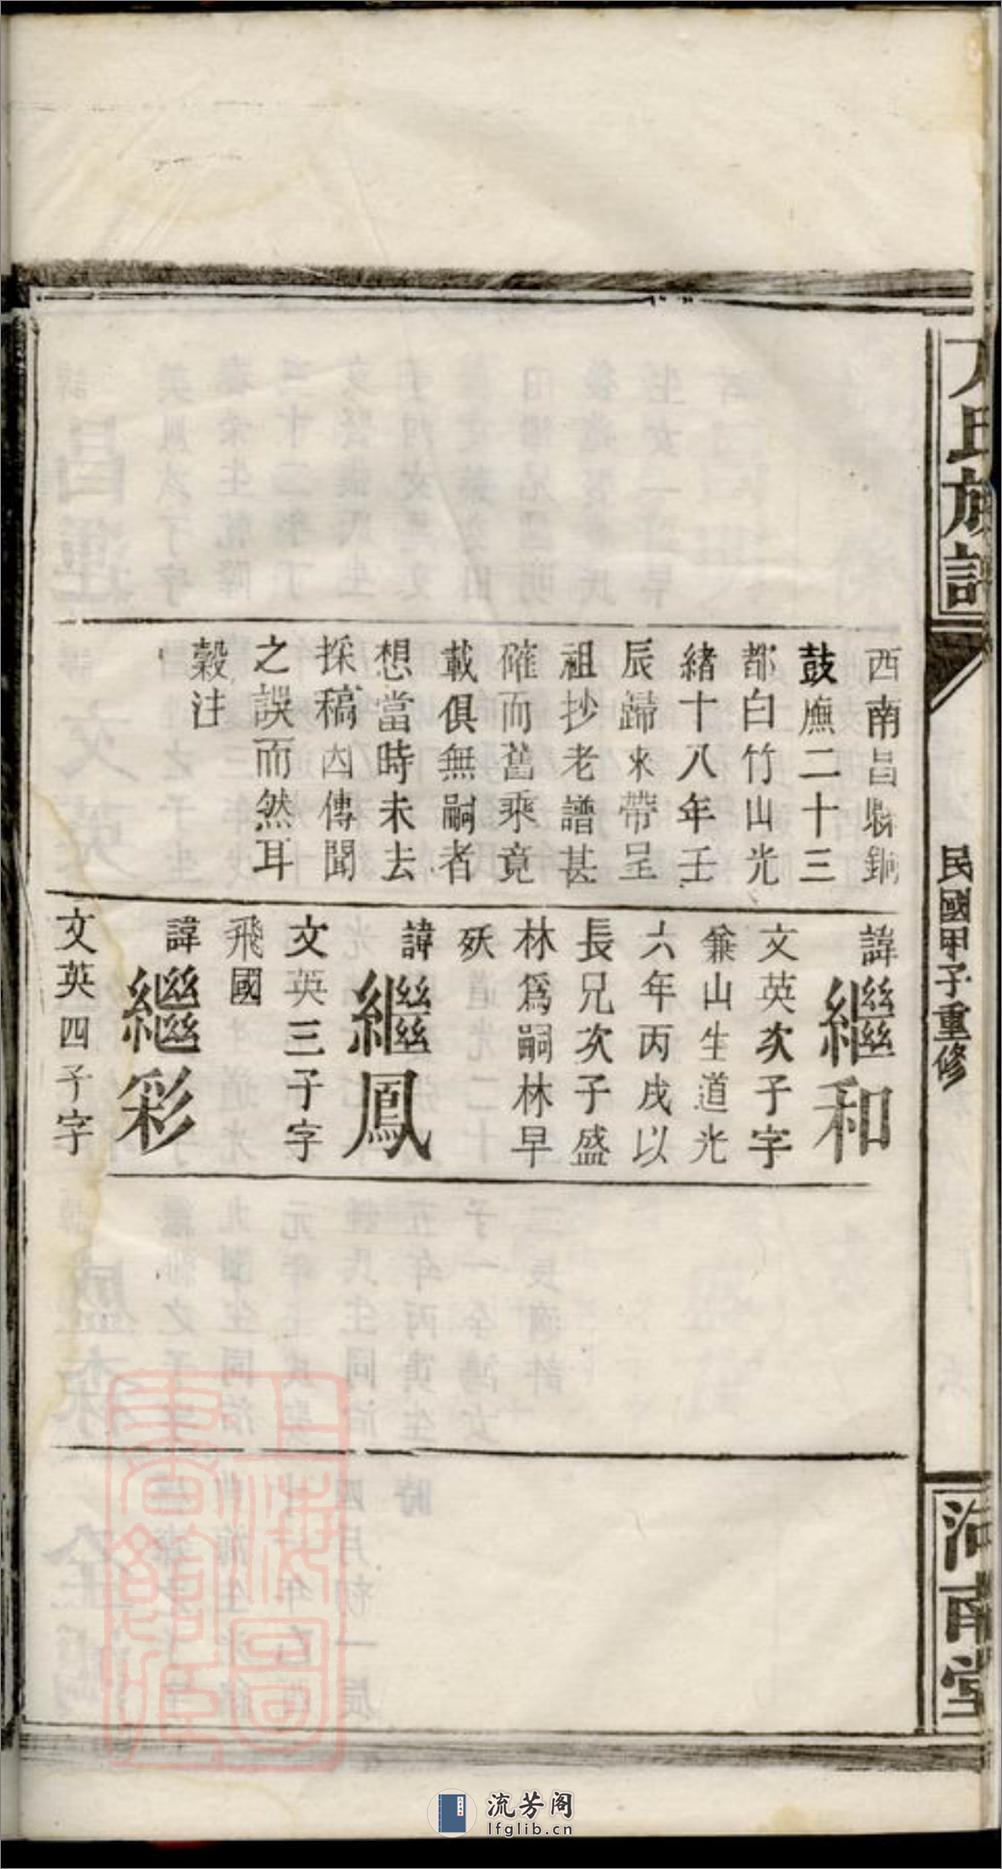 方氏族譜
民國甲子重修
河南堂
西南昌縣銅
鼓廡二十三
都白竹山光
緒十八年壬
辰歸來帶呈
祖抄老譜甚
確而舊乘竟
載俱無嗣者
想當時未去
採稿因傳聞
之誤而然耳
穀注
諱繼和
文英次子字
兼山生道光
六年丙戌以
長兄次子盛
林為嗣林早
殀
諱繼鳳
文英三子字
飛國
諱繼彩
文英四子字
上海圖書館藏
流芳阁
lfglib.cn